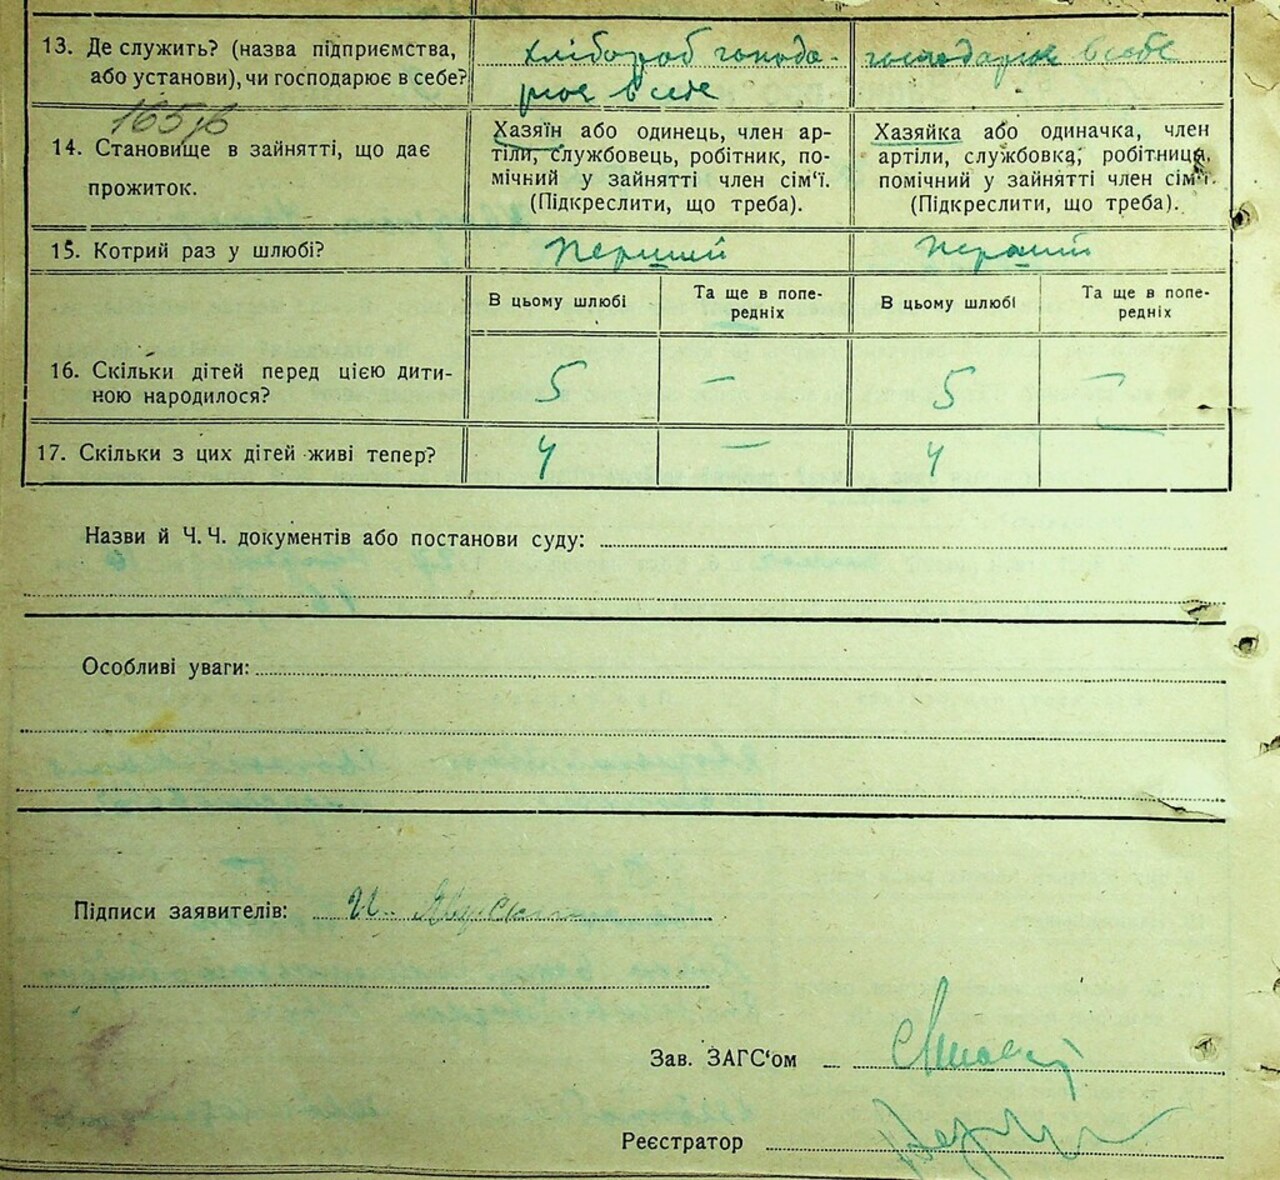 13. Де служить? (назва підприємства, або установи), чи господарює в себе?
хлібороб господа-
рює в себе
господарює в себе
165
14. Становище в зайнятті, що дає прожиток.
Хазяїн або одинець, член ар-
тіли, службовець, робітник, по-
мічний у зайнятті член сім‘ї.
(Підкреслити, що треба).
Хазяйка або одиначка, член
артіли, службовка, робітниця,
помічний у зайнятті член сім‘ї.
(Підкреслити, що треба).
15. Котрий раз у шлюбі?
Перший
Перший
В цьому шлюбі
Та ще в попе-
редніх
В цьому шлюбі
Та ще в попе-
редніх
16. Скільки дітей перед цією дити-
ною народилося?
5 — 5 —
17. Скільки з цих дігей живі тепер?
4 — 4 —
Назви й Ч. Ч. документів або постанови суду:
Особливі уваги:
Підписи заявителів: И.
Зав. ЗАГС‘ом
Реєстратор